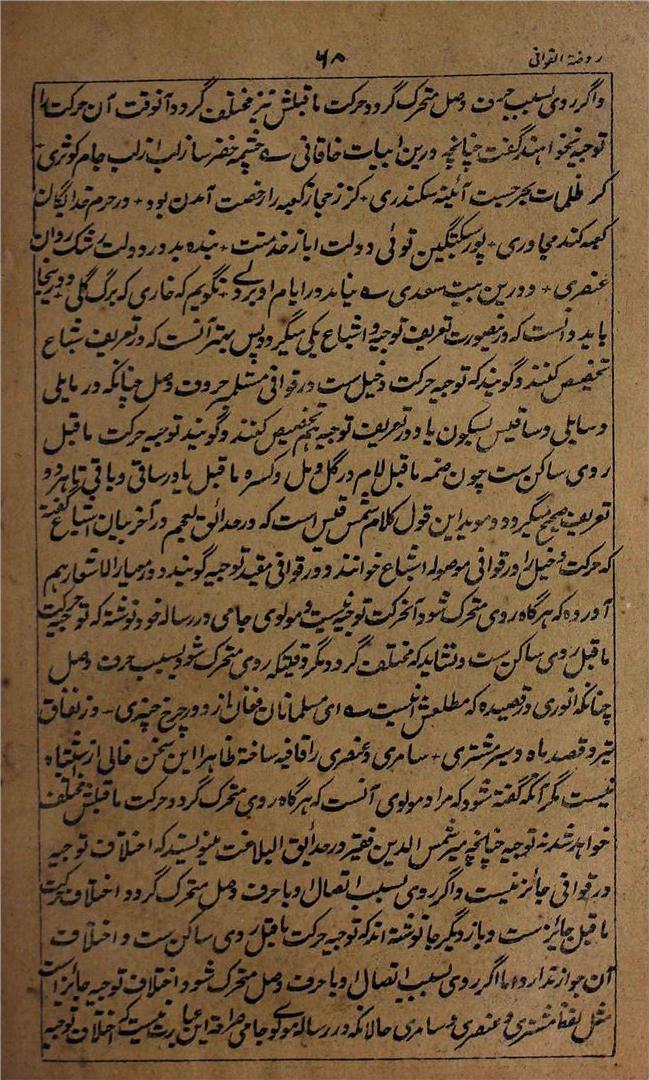 روضة القوافی
۶۸
واگر روی بسبب حرف وصل متحرک گردد حرکت ماقبلش نیز مختلف گردد آنوقت آن حرکت را
توجیه نخواهند گفت چنانچه درین ابیات خاقانی ے چشمه خضر ساز لب از لب جام کوثری
کز ظلمات بحر جست آئینه سکندری + کز حجاز کعبه را رخصت آمدن بود + در حرم خدایگان
کعبه کند مجاوری + پور سبکتگین توئی دولت ایاز خدمتت + بنده بدور دولتت رشک روان
عنصری + و درین بیت سعدی ے نیاید در ایام او بر دلے + نگویم که خاری که برگ گلی و درینجا
باید دانست که درینصورت تعریف توجیه و اشباع یکی میگردد پس بهتر آنست که در تعریف اشباع
تخصیص کنند و گویند که توجیه حرکت دخیل ست در قوافی مشتمله حروف وصل چنانکه در مایلی
و سایلی و ساقیس بسکون یا و در تعریف توجیه هم تخصیص کنند و گویند توجیه حرکت ماقبل
روی ساکن ست چون ضمه ماقبل لام در گل و مل و کسره ماقبل یا در ساقی و باقی تا هر دو
تعریف صحیح میگردد و موید این قول کلام شمس قیس است که در حدائق المعجم در آخر بیان اشباع گفته
که حرکت دخیل را در قوافی موصوله اشباع خوانند و در قوافی مقید توجیه گویند و در معیار الاشعار هم
آورده که هرگاه روی متحرک شود آنحرکت توجیه نیست و مولوی جامی در رساله خود نوشته که توجیه حرکت
ماقبل روی ساکن ست و نشاید که مختلف گردد مگر وقتیکه روی متحرک شود بسبب حرف وصل
چنانکه انوری در قصیده که مطلعش اینست ے ای مسلمانان فغان از دور چرخ چنبری - وز نفاق
تیر و قصد ماه و سیر مشتری + سامری و عنصری را قافیه ساخته ظاهرا این سخن خالی از اشتباه
نیست مگر آنکه گفته شود که مراد مولوی آنست که هرگاه روی متحرک گردد حرکت ماقبلش مختلف
خواهد شد نه توجیه چنانچه میر شمس الدین فقیر در حدائق البلاغت مینویسد که اختلاف توجیه
در قوافی جائز نیست و اگر روی بسبب اتصال او با حرف وصل متحرک گردد اختلاف حرکت
ماقبل جائز ست و باز دیگر جا نوشته اند که توجیه حرکت ماقبل روی ساکن ست و اختلاف
آن جواز ندارد و اما اگر روی بسبب اتصال او با حرف وصل متحرک شود اختلاف توجیه جائز است
مثل لفظ مشتری و عنصری و سامری حالانکه در رساله مولوی جامی صراحة این عبارت نیست که اختلاف توجیه